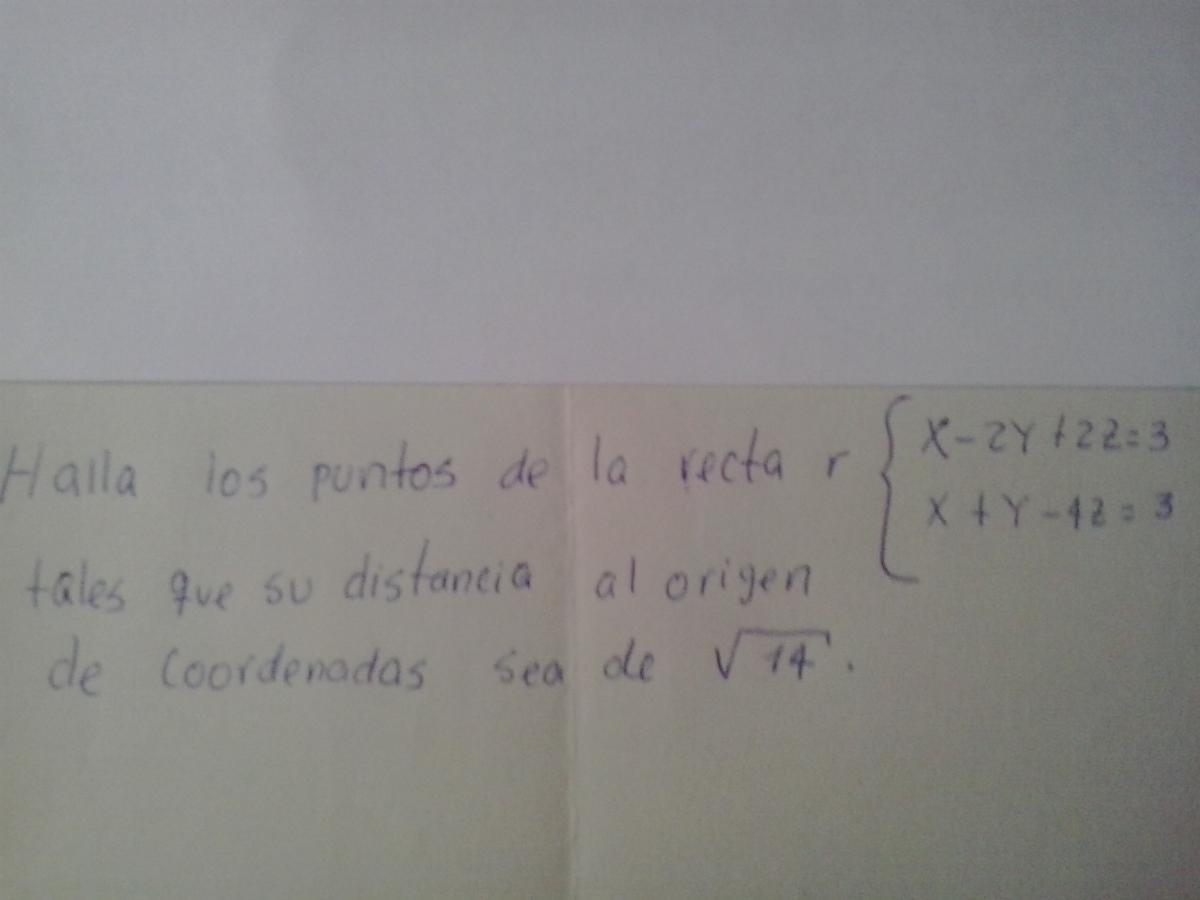 Halla los puntos de la recta r { X-2Y+2Z=3
X+Y-4Z=3
tales que su distancia al origen
de coordenadas sea de √14.